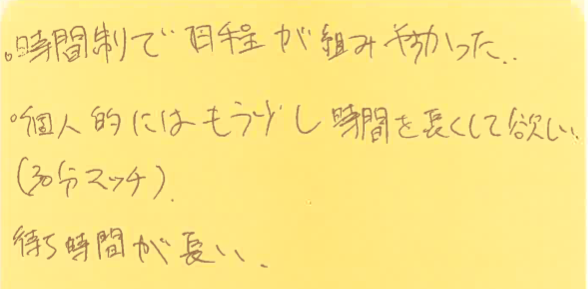 。時間制で日程が組みやすかった..
°個人的にはもう少し時間を長くして欲しい.
(30分マッチ).
待ち時間が長い.